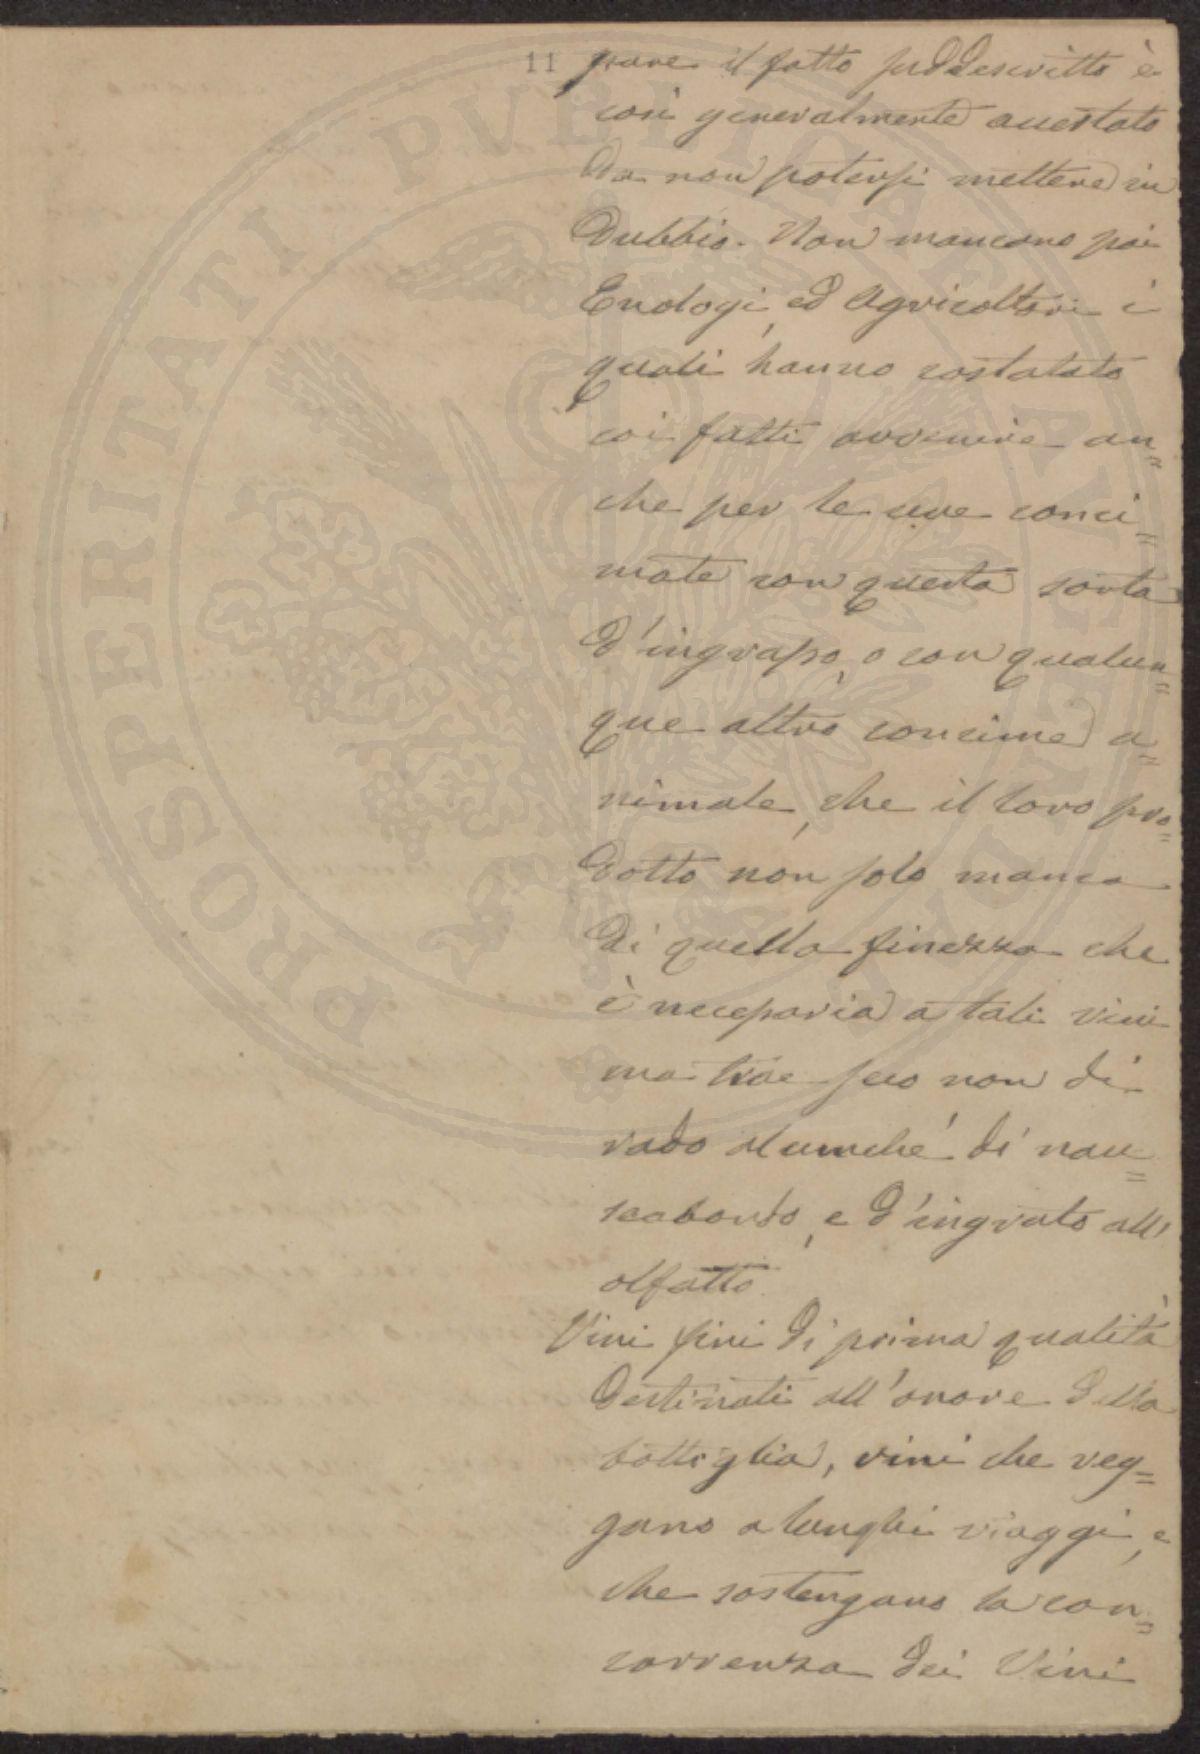 11 grave il fatto suddescritto è
così generalmente accertato
da non potersi mettere in
Dubbio. Non mancano poi
Enologi, ed Agricoltori i
quali hanno costatato
coi fatti avvenire an=
che per le uve conci=
mate con questa sorta
d'ingrasso, o con qualun=
que altro concime a=
nimale, che il loro pro=
dotto non solo manca
di quella finezza che
è necessaria a tali vini
ma trae seco non di
rado alcunché di nau=
seabondo, e d'ingrato all'
olfatto.
Vini fini di prima qualità
destinati all'onore della
bottiglia, vini che reg=
gano a lunghi viaggi, e
che sostengano la con=
correnza dei Vini
PROSPERITATI PVBLICAE AVGENDAE